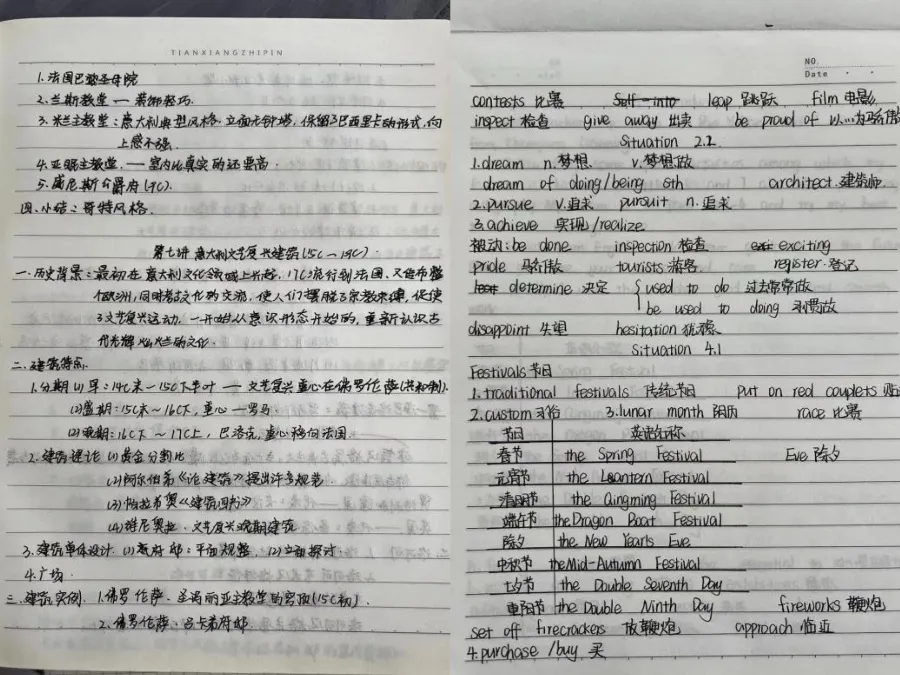 TIANXIANGZHIPIN
1. 法国巴黎圣母院
2. 兰斯教堂 — 装饰轻巧.
3. 米兰主教堂：意大利典型风格. 立面无钟塔，保留了巴西里卡的形式，向
上感不强.
4. 亚眠主教堂. — 室内比真实的还要高.
5. 威尼斯公爵府 (9C).
四、小结：哥特风格.
第七讲 意大利文艺复兴建筑 (15C — 19C).
一. 历史背景：最初在意大利文化领域上兴起，17C流行到法国、又进而整
个欧洲，同时考古文化的交流，使人们摆脱了宗教束缚，促使
了文艺复兴运动. 一开始从意识形态开始的，重新认识古
代光辉灿烂的文化.
二. 建筑特点.
1. 分期 (1) 早：14C末～15C下半叶 — 文艺复兴重心在佛罗伦萨(共和制).
(2) 盛期：15C末～16C下，重心 — 罗马
(3) 晚期：16C下～17C上，巴洛克，重心移向法国
2. 建筑理论 (1) 黄金分割比
(2) 阿尔伯蒂《论建筑》提出许多规范.
(3) 帕拉蒂奥《建筑四书》
(4) 维尼奥拉. 文艺复兴晚期建筑
3. 建筑单体设计. (1) 教府邸：平面规整. (2) 立面探讨
4. 广场.
三. 建筑实例. 1. 佛罗伦萨. 圣玛丽亚主教堂的穹顶 (15C初).
2. 佛罗伦萨. 吕卡第府邸
NO.
Date
contests 比赛 Self-into leap 跳跃 film 电影
inspect 检查 give away 出卖 be proud of 以…为骄傲
Situation 2.2
1. dream n. 梦想. v. 梦想做
dream of doing/being sth architect. 建筑师
2. pursue v. 追求 pursuit n. 追求
3. achieve 实现/realize.
被动：be done. inspection 检查 exciting
pride 骄傲 tourists 游客 register. 登记
determine 决定 { used to do 过去常常做
be used to doing 习惯做
disappoint 失望 hesitation 犹豫.
Situation 4.1
Festivals 节日
1. traditional festivals 传统节日 put on red couplets
2. custom 习俗 3. lunar month 阴历 race 比赛
节日 英语名称
春节 the Spring Festival Eve 除夕
元宵节 the Lantern Festival
清明节 the Qingming Festival
端午节 the Dragon Boat Festival
除夕 the New Year's Eve
中秋节 the Mid-Autumn Festival
七夕节 the Double Seventh Day
重阳节 the Double Ninth Day fireworks 鞭炮
set off firecrackers 放鞭炮 approach 临近
4. purchase / buy 买